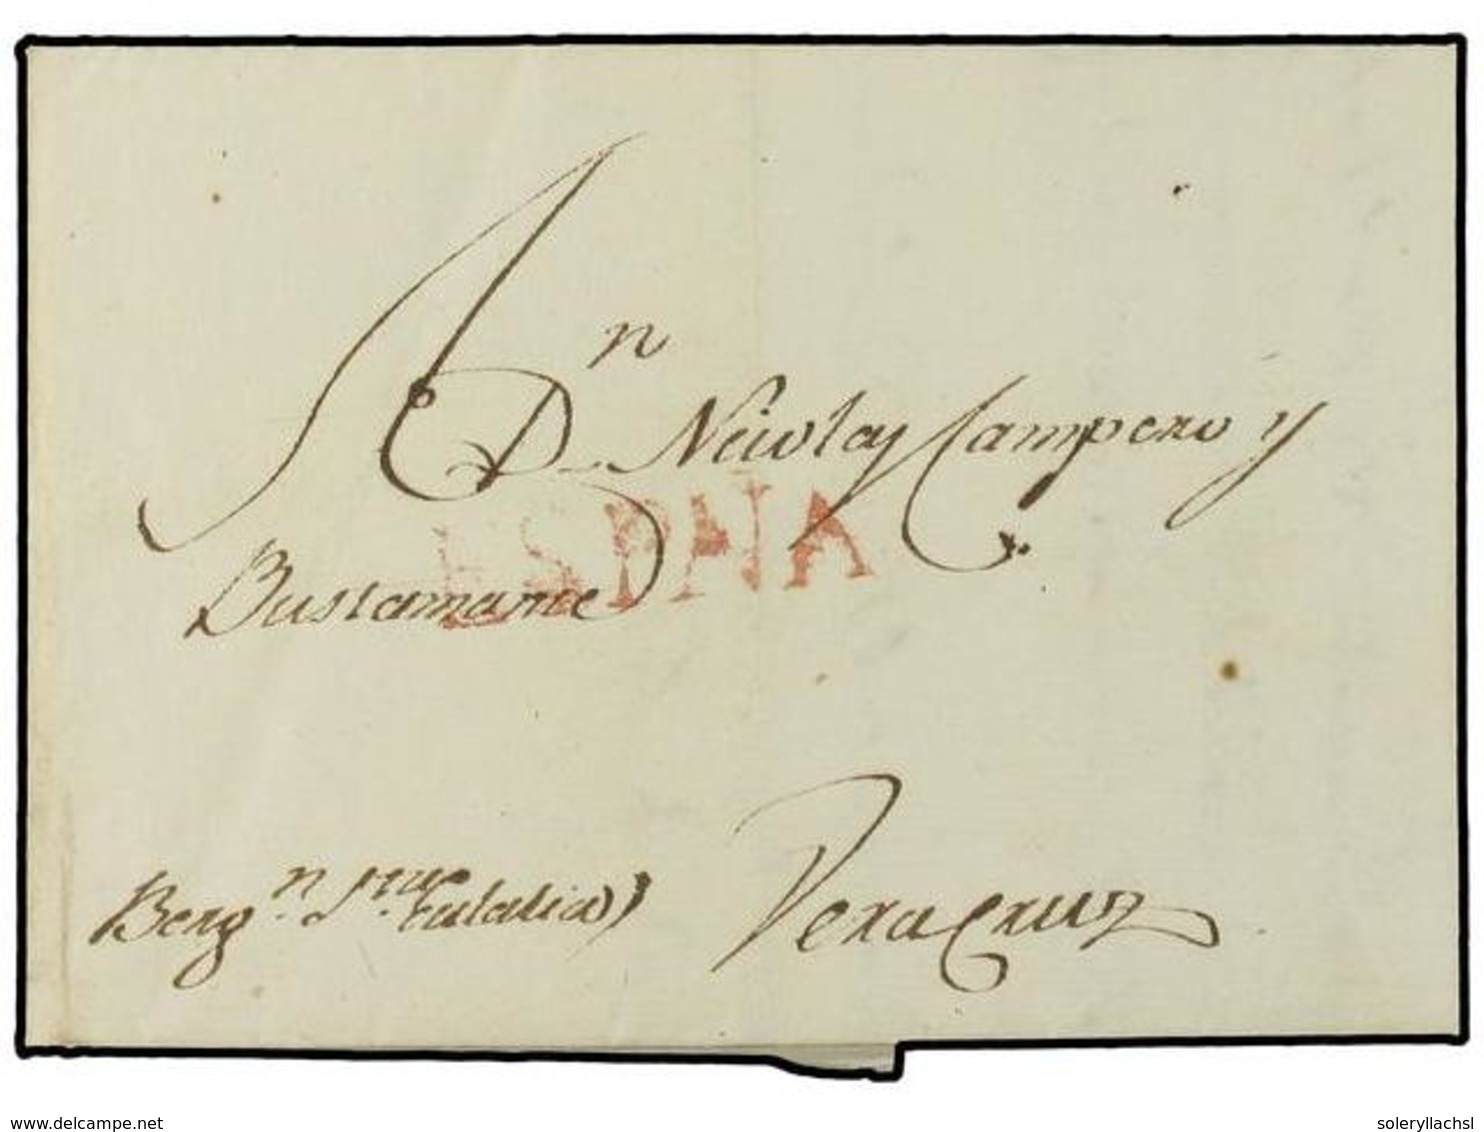 A Dn. Neiolay Campero y
ESPNA
Bustamante
Bergn. Sta. Eulalia
VeraCruz
www.delcampe.net
soleryllachsl